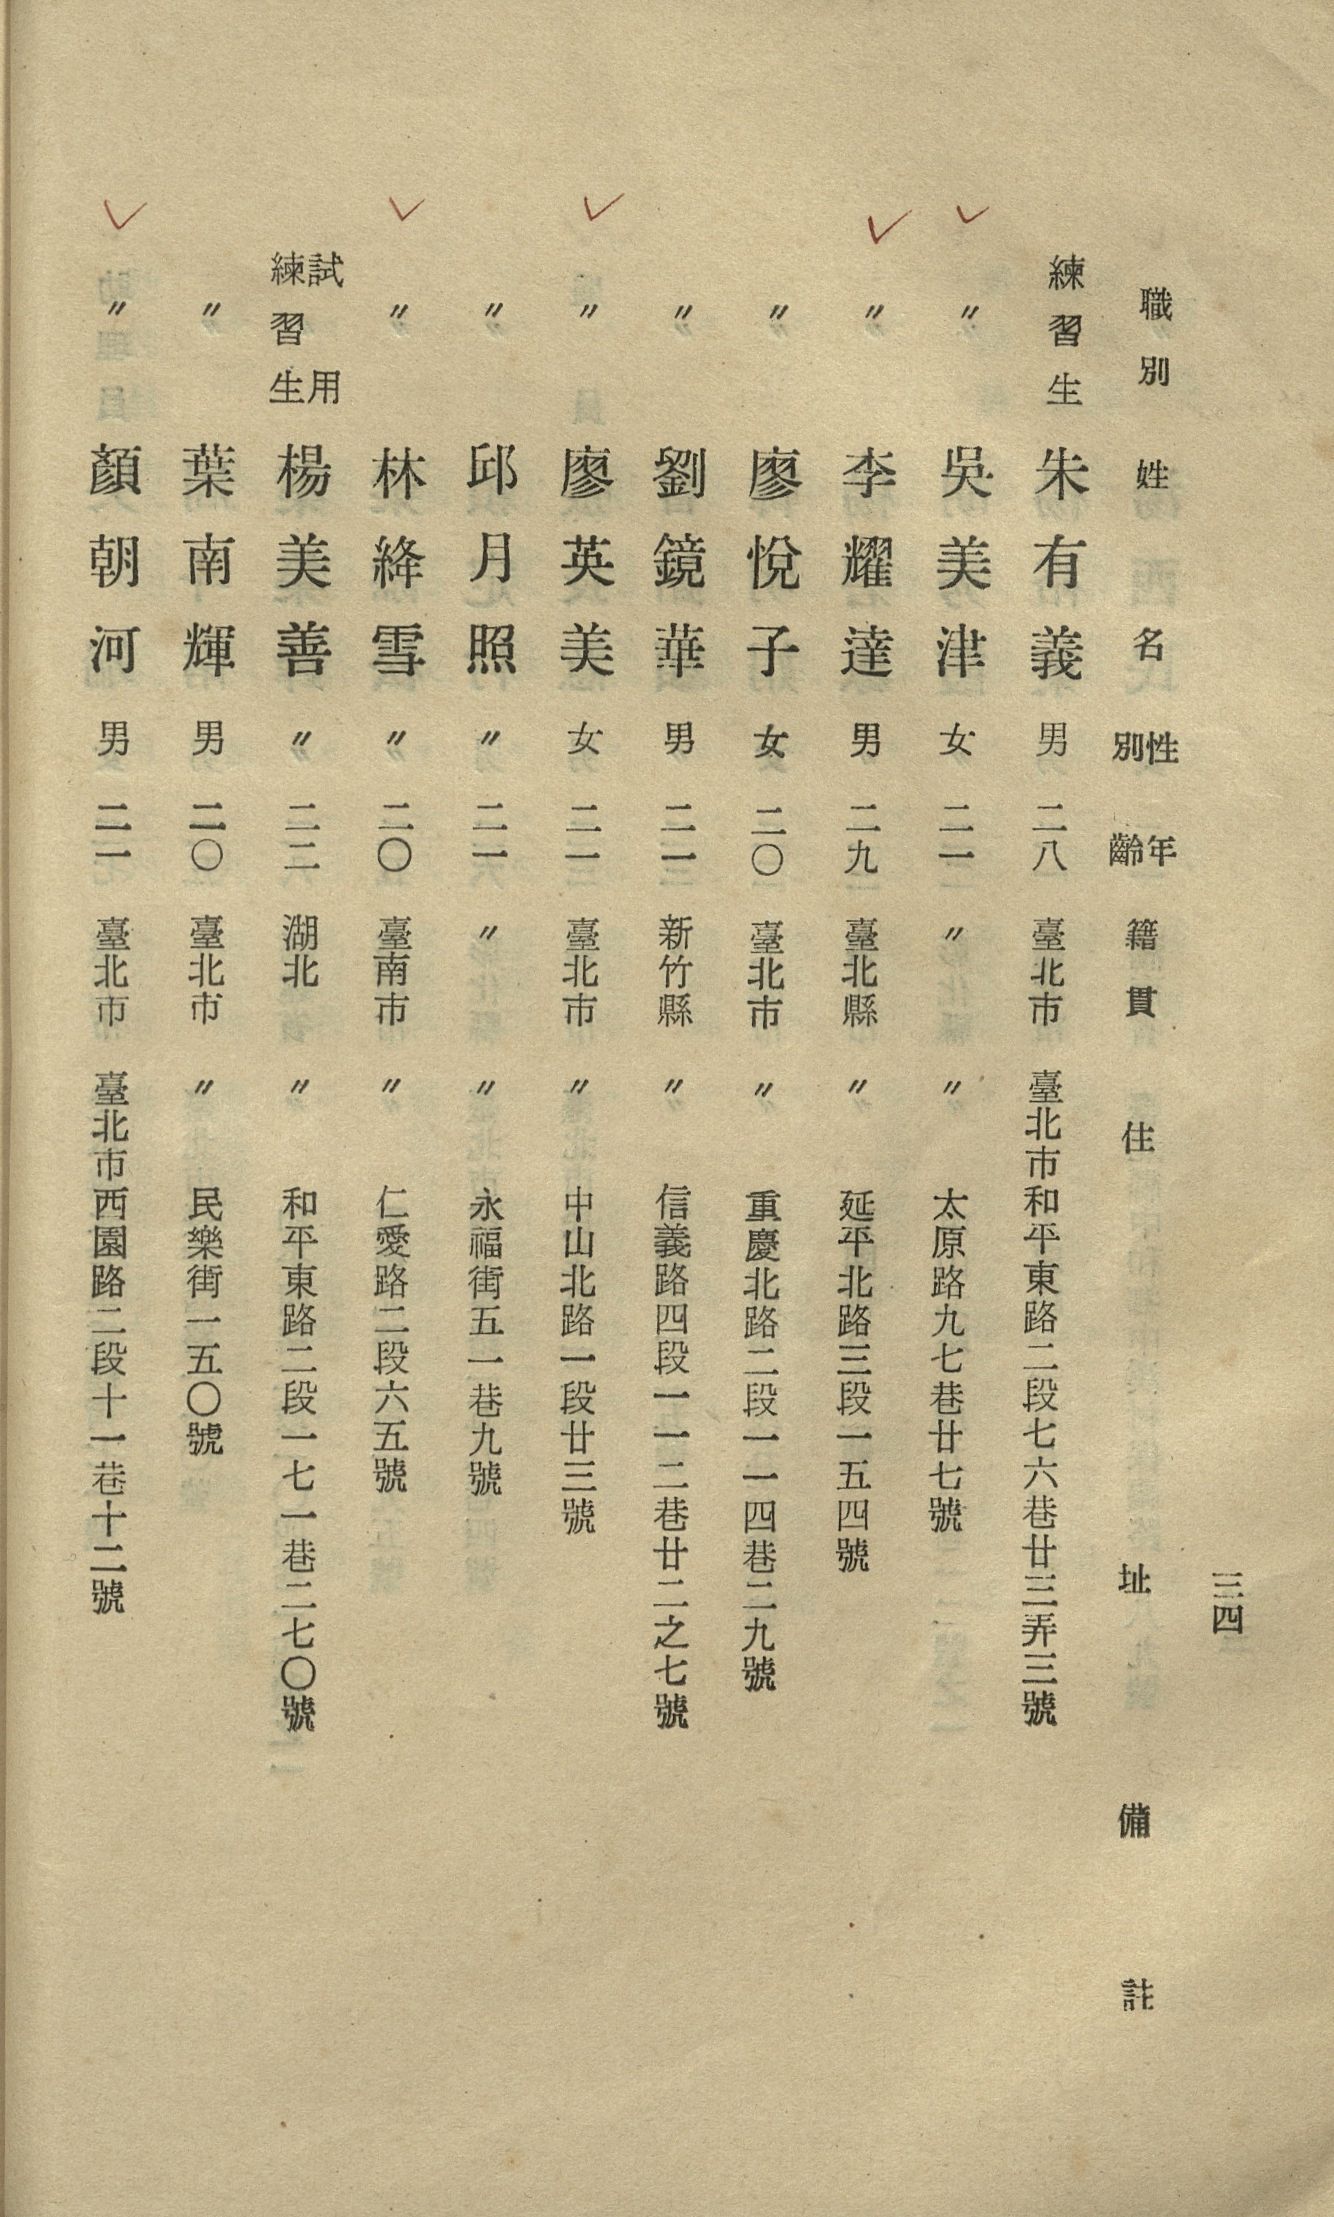 三四
職別 姓名 性別 年齡 籍貫 住址 備註
練習生 朱有義 男 二八 臺北市 臺北市和平東路二段七六巷廿三弄三號
〃 吳美津 女 二一 〃 〃 太原路九七巷廿七號
〃 李耀達 男 二九 臺北縣 〃 延平北路三段一五四號
〃 廖悅子 女 二〇 臺北市 〃 重慶北路二段一一四巷二九號
〃 劉鏡華 男 二一 新竹縣 〃 信義路四段一一二巷廿二之七號
〃 廖英美 女 二一 臺北市 〃 中山北路一段廿三號
〃 邱月照 〃 二一 〃 〃 永福街五一巷九號
〃 林絳雪 〃 二〇 臺南市 〃 仁愛路二段六五號
試用練習生 楊美善 〃 二二 湖北 〃 和平東路二段一七一巷二七〇號
〃 葉南輝 男 二〇 臺北市 〃 民樂街一五〇號
〃 顏朝河 男 二一 臺北市 臺北市西園路二段十一巷十二號